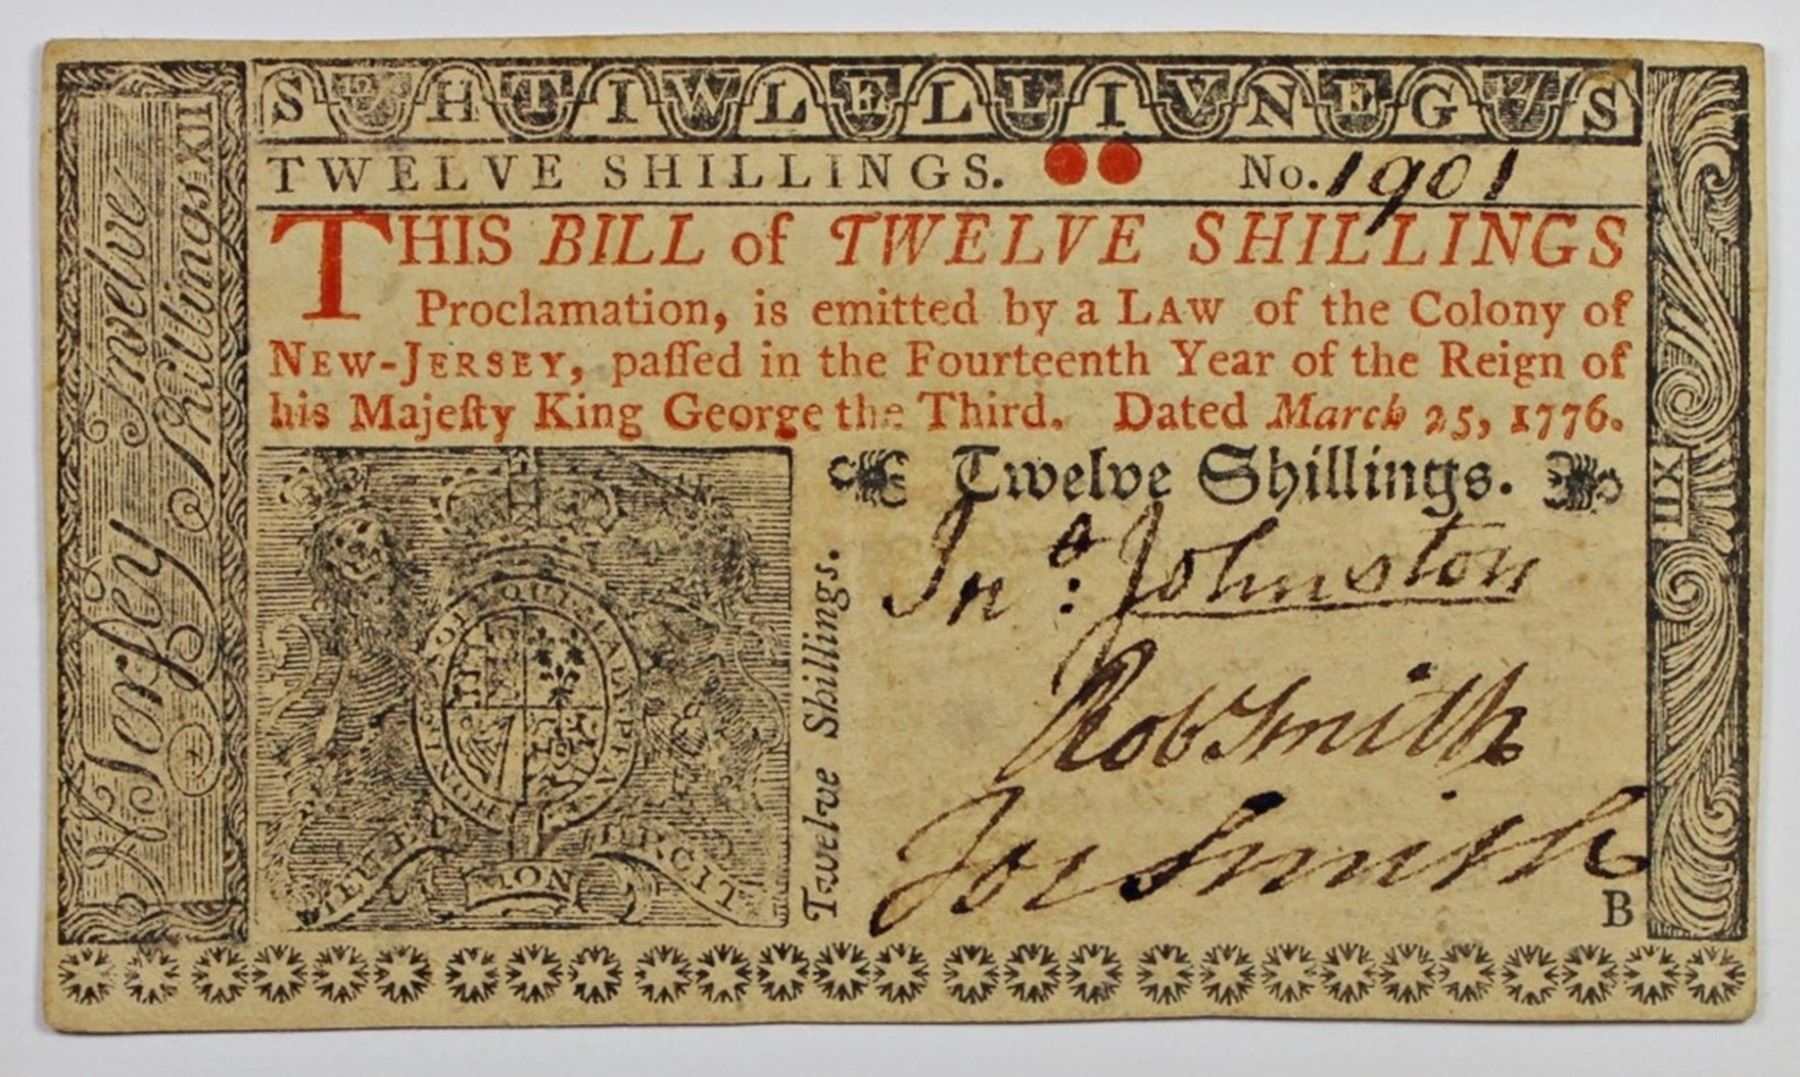 SPHTIWLELLIVNEGLS
TWELVE SHILLINGS. No. 1901
THIS BILL of TWELVE SHILLINGS
Proclamation, is emitted by a LAW of the Colony of
NEW-JERSEY, paſſed in the Fourteenth Year of the Reign of
his Majeſty King George the Third. Dated March 25, 1776.
Jerſey Twelve Shillings XII
Twelve Shillings.
XII
Jno: Johnston
Rob Smith
Jos Smith
Twelve Shillings.
HONI SOIT QUI MAL Y PENSE
DIEU ET MON DROIT
B